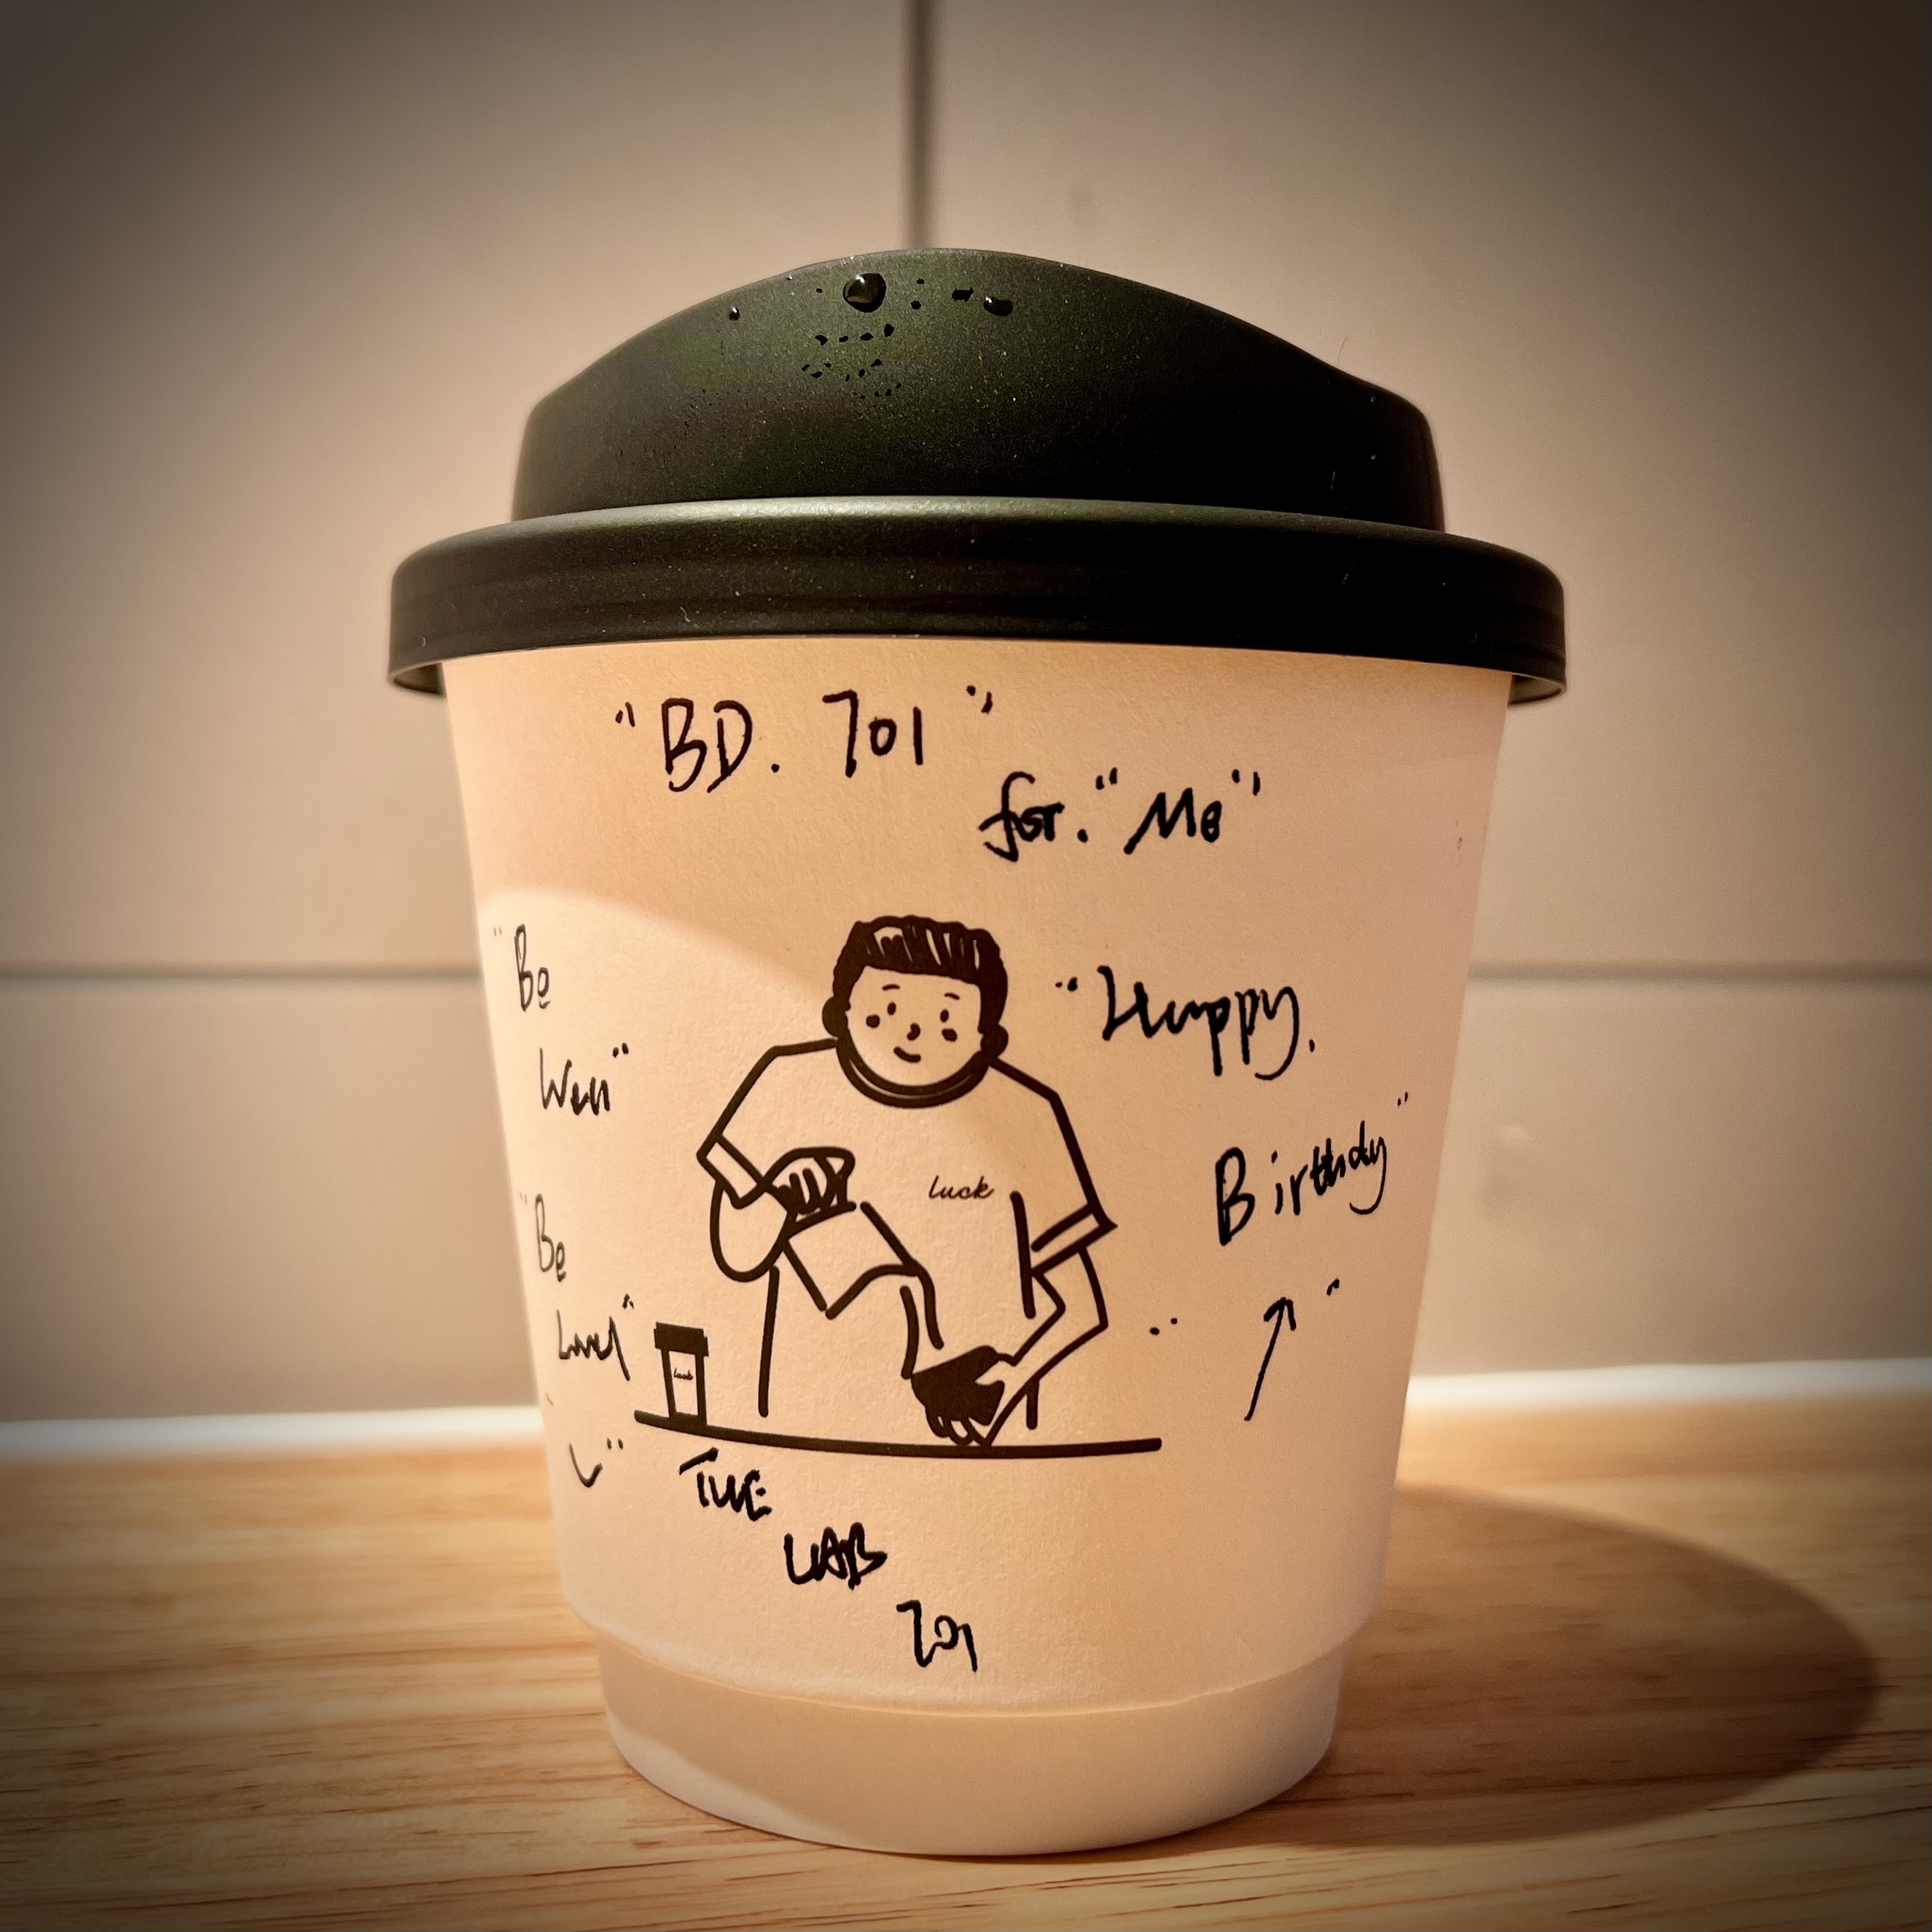 "BD. 701"
for. "Me"
"Be
Well"
"Be
Loved"
"Happy.
Birthday"
luck
luck
THE
LAB
701